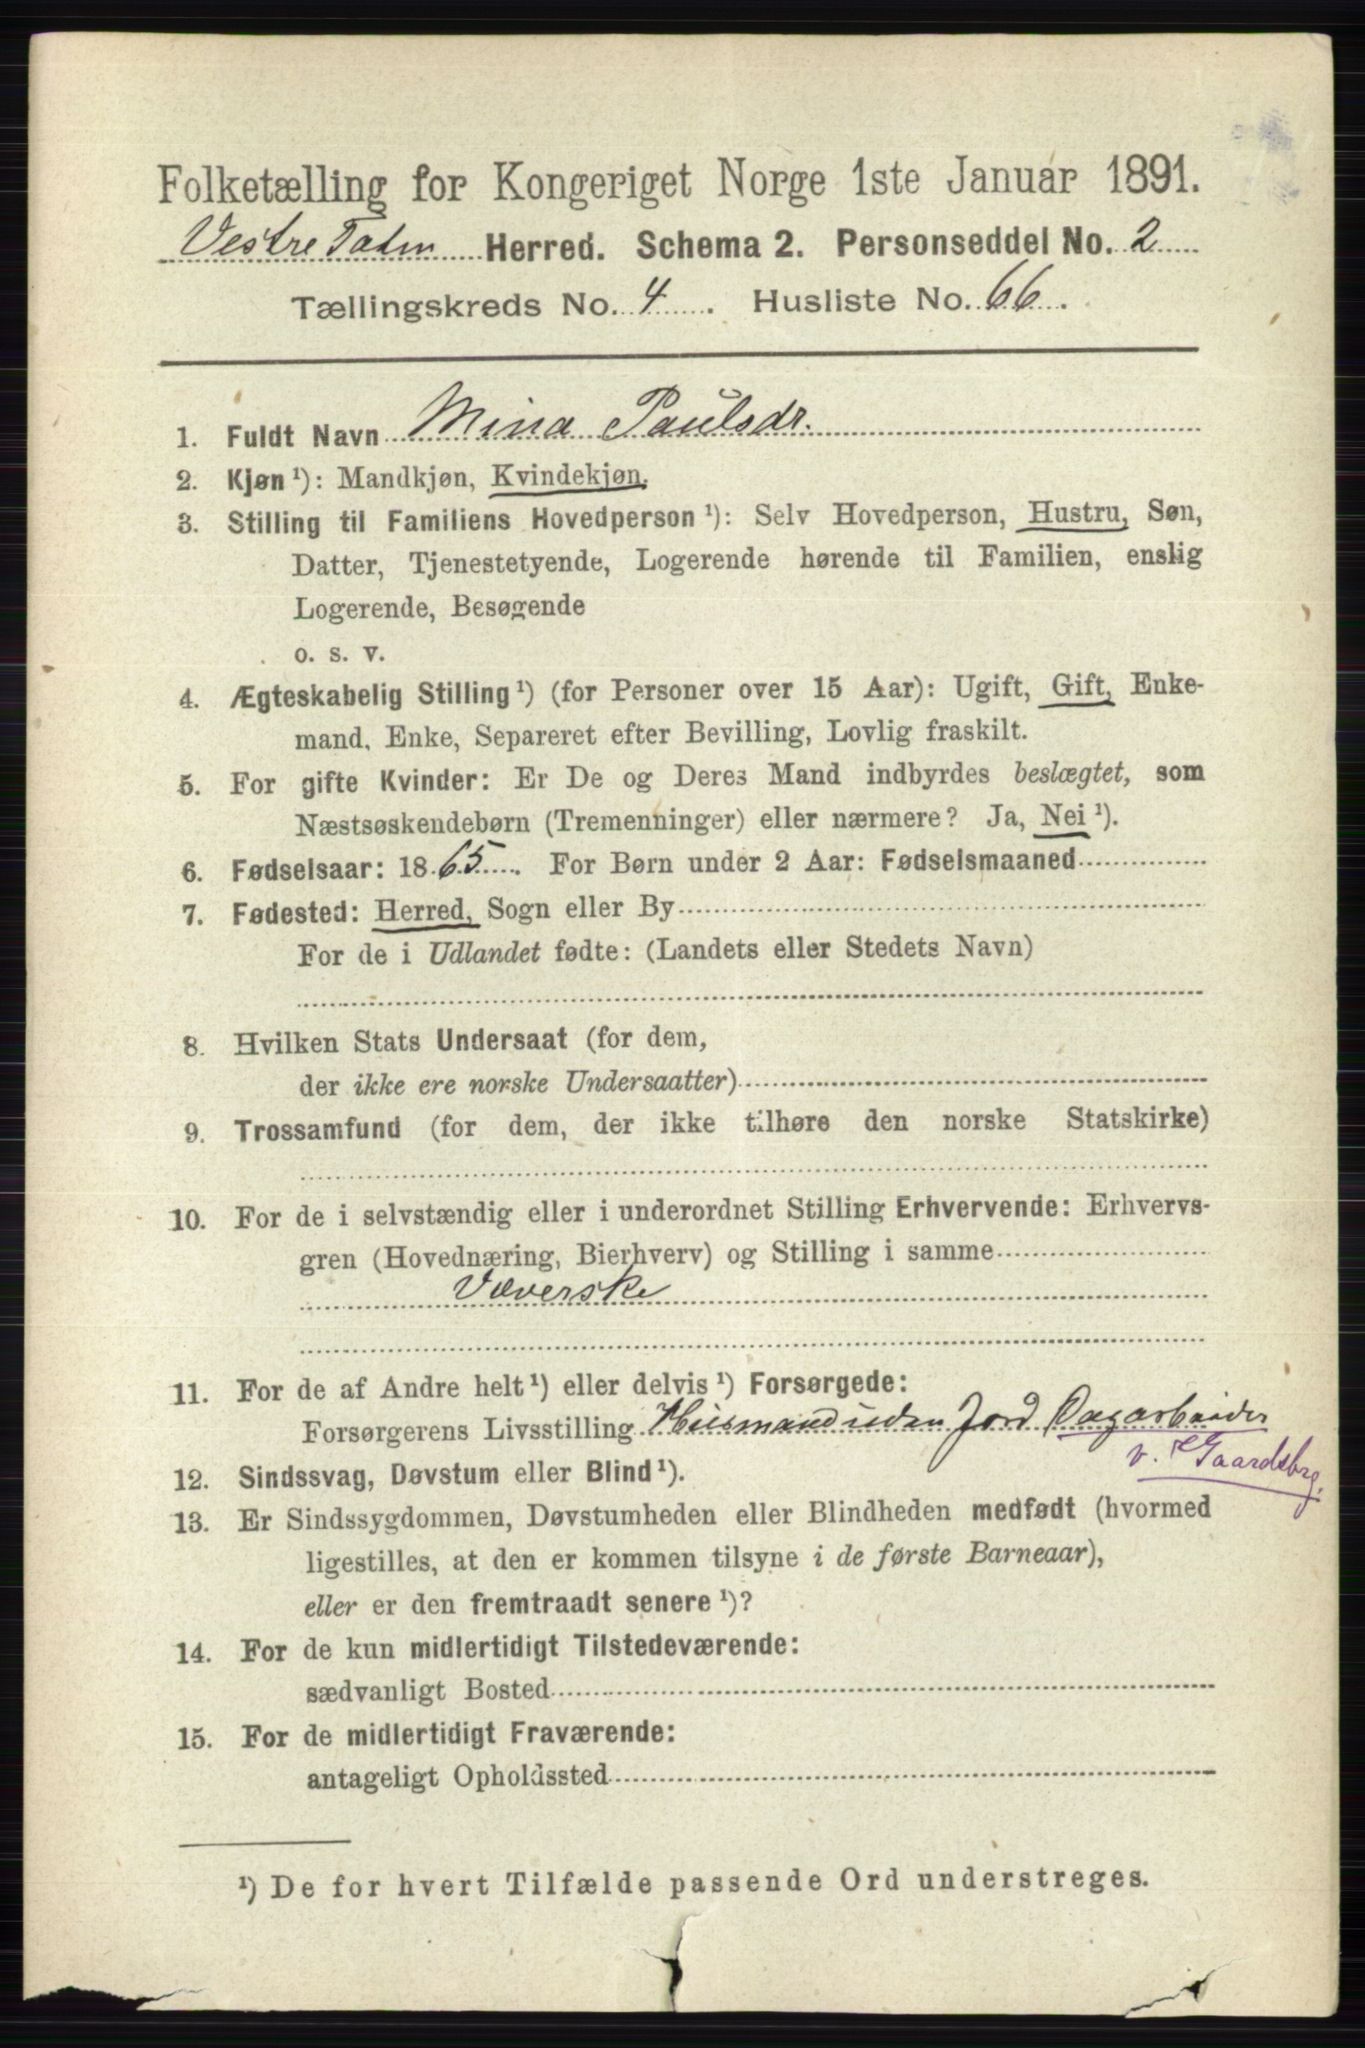 Folketælling for Kongeriget Norge 1ste Januar 1891.
Vestre Toten Herred. Schema 2. Personseddel No. 2
Tællingskreds No. 4. Husliste No. 66.
1. Fuldt Navn Mina Paulsdr.
2. Kjøn ¹): Mandkjøn, Kvindekjøn.
3. Stilling til Familiens Hovedperson ¹): Selv Hovedperson, Hustru, Søn,
Datter, Tjenestetyende, Logerende hørende til Familien, enslig
Logerende, Besøgende
o. s. v.
4. Ægteskabelig Stilling ¹) (for Personer over 15 Aar): Ugift, Gift, Enke-
mand, Enke, Separeret efter Bevilling, Lovlig fraskilt.
5. For gifte Kvinder: Er De og Deres Mand indbyrdes beslægtet, som
Næstsøskendebørn (Tremenninger) eller nærmere? Ja, Nei ¹).
6. Fødselsaar: 1865. For Børn under 2 Aar: Fødselsmaaned
7. Fødested: Herred, Sogn eller By
For de i Udlandet fødte: (Landets eller Stedets Navn)
8. Hvilken Stats Undersaat (for dem,
der ikke ere norske Undersaatter)
9. Trossamfund (for dem, der ikke tilhøre den norske Statskirke)
10. For de i selvstændig eller i underordnet Stilling Erhvervende: Erhvervs-
gren (Hovednæring, Bierhverv) og Stilling i samme
Væverske
11. For de af Andre helt ¹) eller delvis ¹) Forsørgede:
Forsørgerens Livsstilling Husmand uden Jord Dagarbeider
v. Gaardsbrg.
12. Sindssvag, Døvstum eller Blind ¹).
13. Er Sindssygdommen, Døvstumheden eller Blindheden medfødt (hvormed
ligestilles, at den er kommen tilsyne i de første Barneaar),
eller er den fremtraadt senere ¹)?
14. For de kun midlertidigt Tilstedeværende:
sædvanligt Bosted
15. For de midlertidigt Fraværende:
antageligt Opholdssted
¹) De for hvert Tilfælde passende Ord understreges.